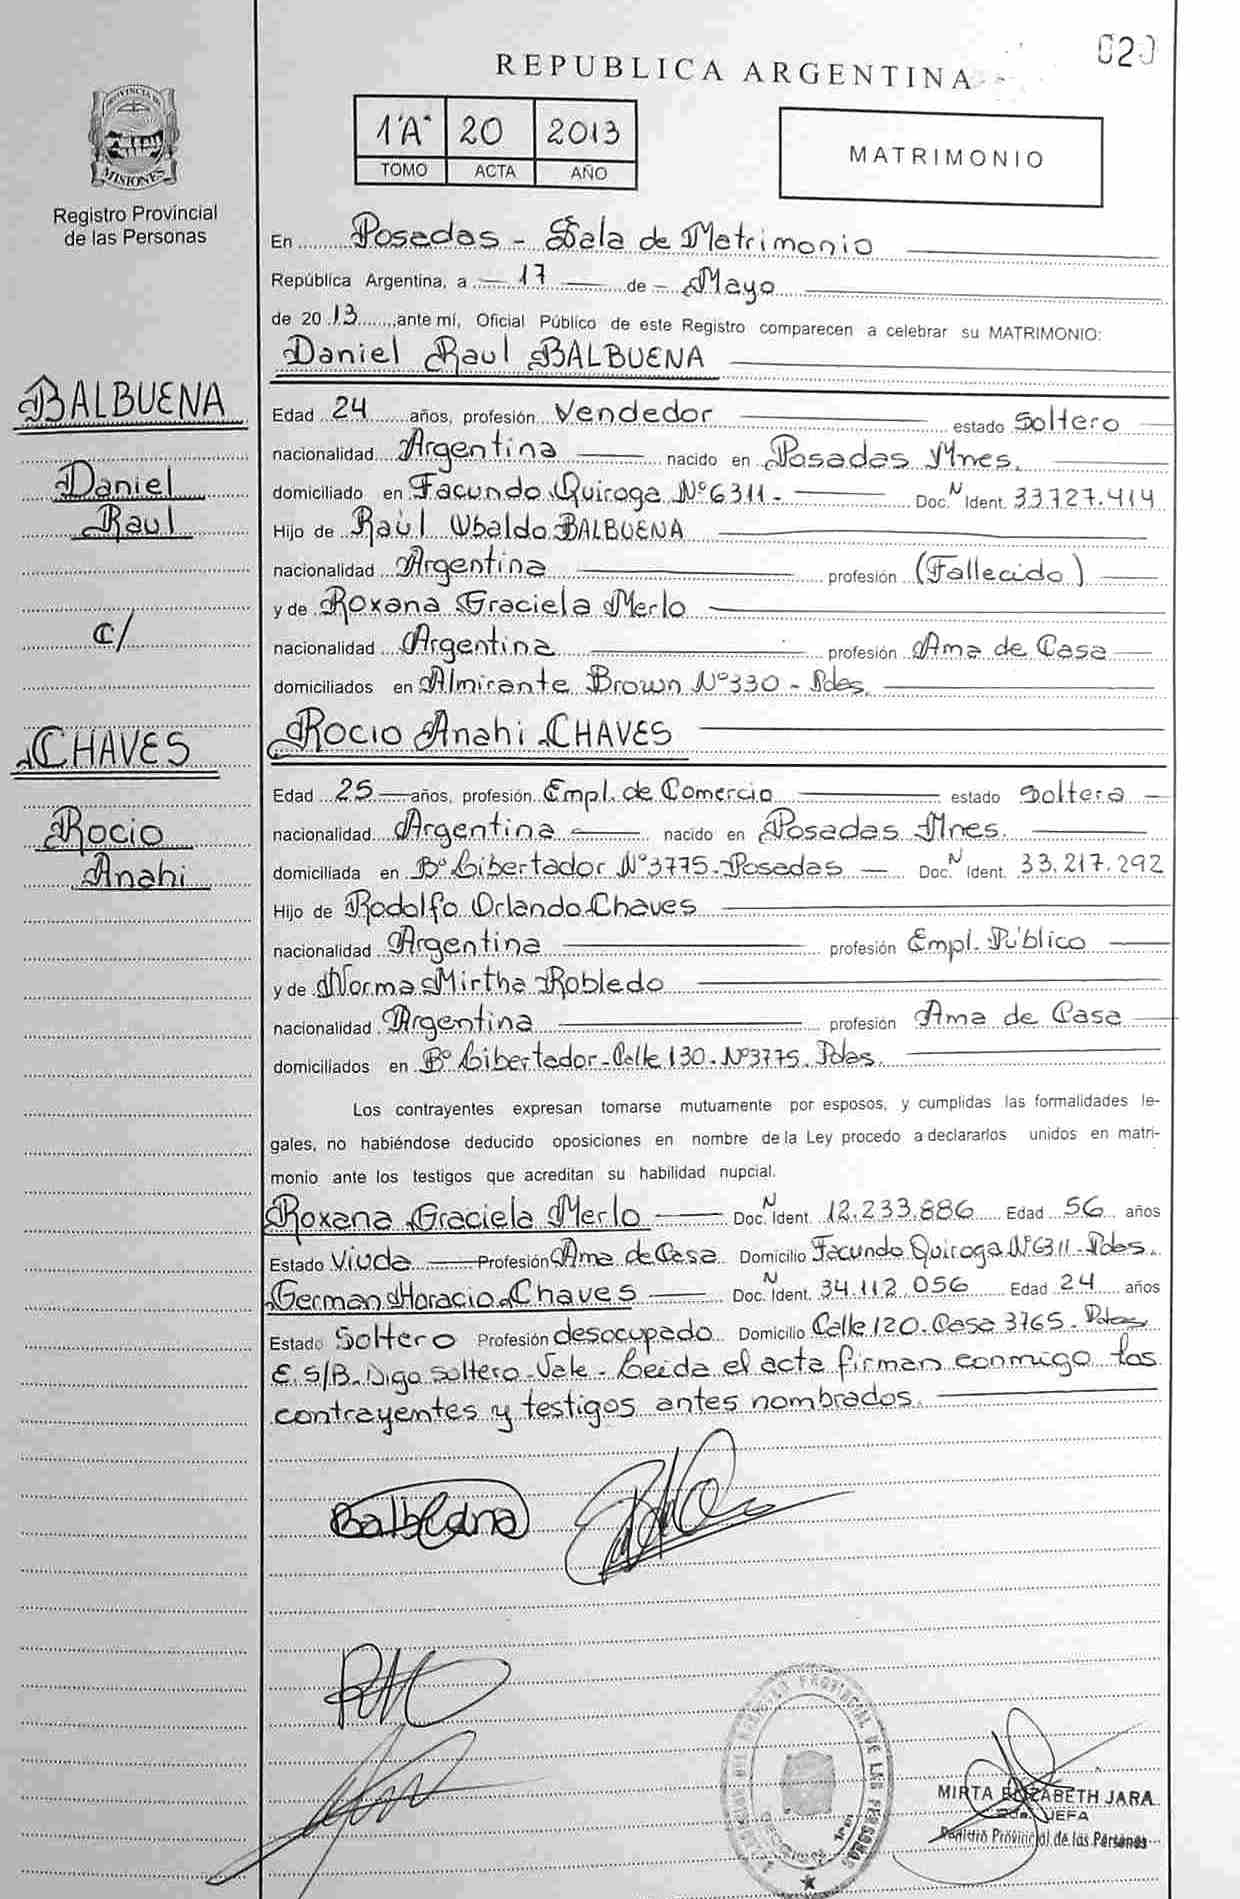 020
REPUBLICA ARGENTINA
1"A" 20 2013
TOMO ACTA AÑO
MATRIMONIO
PROVINCIA DE
MISIONES
Registro Provincial
de las Personas
En Posadas - Sala de Matrimonio
República Argentina, a 17 de Mayo
de 2013, ante mí, Oficial Público de este Registro comparecen a celebrar su MATRIMONIO:
Daniel Raul BALBUENA
BALBUENA
Daniel
Raul
C/
CHAVES
Rocio
Anahi
Edad 24 años, profesión Vendedor estado Soltero
nacionalidad Argentina nacido en Posadas Mnes.
domiciliado en Facundo Quiroga Nº 6311 - Doc. N Ident. 33.727.414
Hijo de Raúl Ubaldo BALBUENA
nacionalidad Argentina profesión (Fallecido)
y de Roxana Graciela Merlo
nacionalidad Argentina profesión Ama de Casa
domiciliados en Almirante Brown Nº 330 - Pdas.
Rocio Anahi CHAVES
Edad 25 años, profesión Empl. de Comercio estado Soltera
nacionalidad Argentina nacido en Posadas Mnes.
domiciliada en Bº Libertador Nº 3775. Posadas Doc. N Ident. 33.217.292
Hijo de Rodolfo Orlando Chaves
nacionalidad Argentina profesión Empl. Público
y de Norma Mirtha Robledo
nacionalidad Argentina profesión Ama de Casa
domiciliados en Bº Libertador - Calle 130. Nº 3775. Pdas.
Los contrayentes expresan tomarse mutuamente por esposos, y cumplidas las formalidades le-
gales, no habiéndose deducido oposiciones en nombre de la Ley procedo a declararlos unidos en matri-
monio ante los testigos que acreditan su habilidad nupcial.
Roxana Graciela Merlo Doc. N Ident. 12.233.886 Edad 56 años
Estado Viuda Profesión Ama de Casa Domicilio Facundo Quiroga Nº 6311 - Pdas.
German Horacio Chaves Doc. N Ident. 34.112.056 Edad 24 años
Estado Soltero Profesión desocupado Domicilio Calle 120. Casa 3765. Pdas
E.S/B. Digo soltero. Vale. Leida el acta firman conmigo los
contrayentes y testigos antes nombrados.
Balbuena
MIRTA ELIZABETH JARA
2da. JEFA
Registro Provincial de las Personas